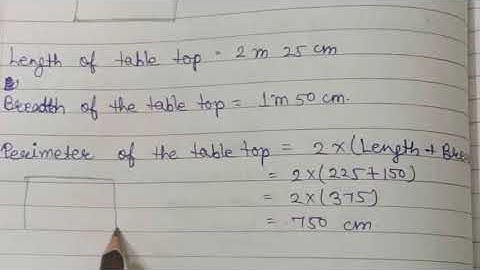 Length of table top = 2 m 25 cm
Breadth of the table top = 1m 50 cm.
Perimeter of the table top = 2×(Length +
= 2×(225+150)
= 2×(375)
= 750 cm